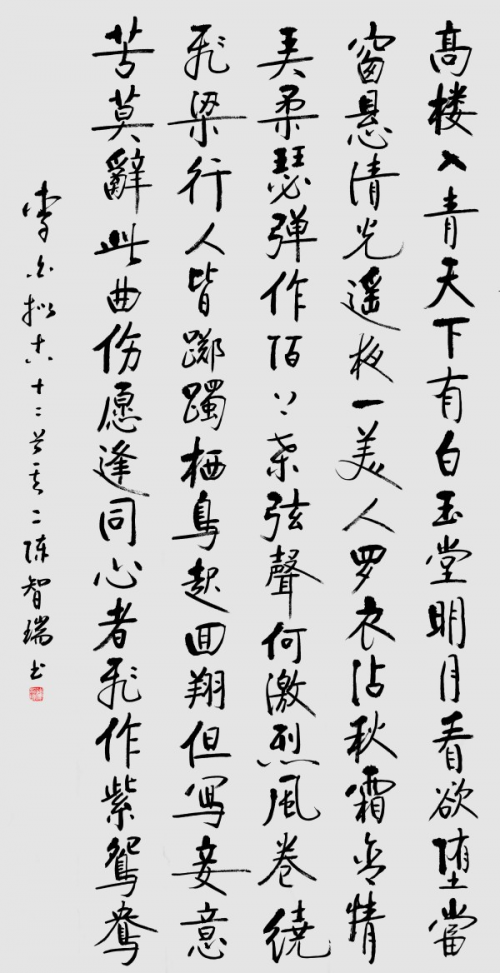 高楼入青天下有白玉堂明月看欲堕當
窗悬清光遥夜一美人罗衣沾秋霜含情
弄柔瑟弹作陌上桑弦聲何激烈風卷繞
飛梁行人皆踯躅栖鳥起回翔但寫妾意
苦莫辭此曲伤愿逢同心者飛作紫鴛鴦
李白拟古十二首其二陈智瑞书